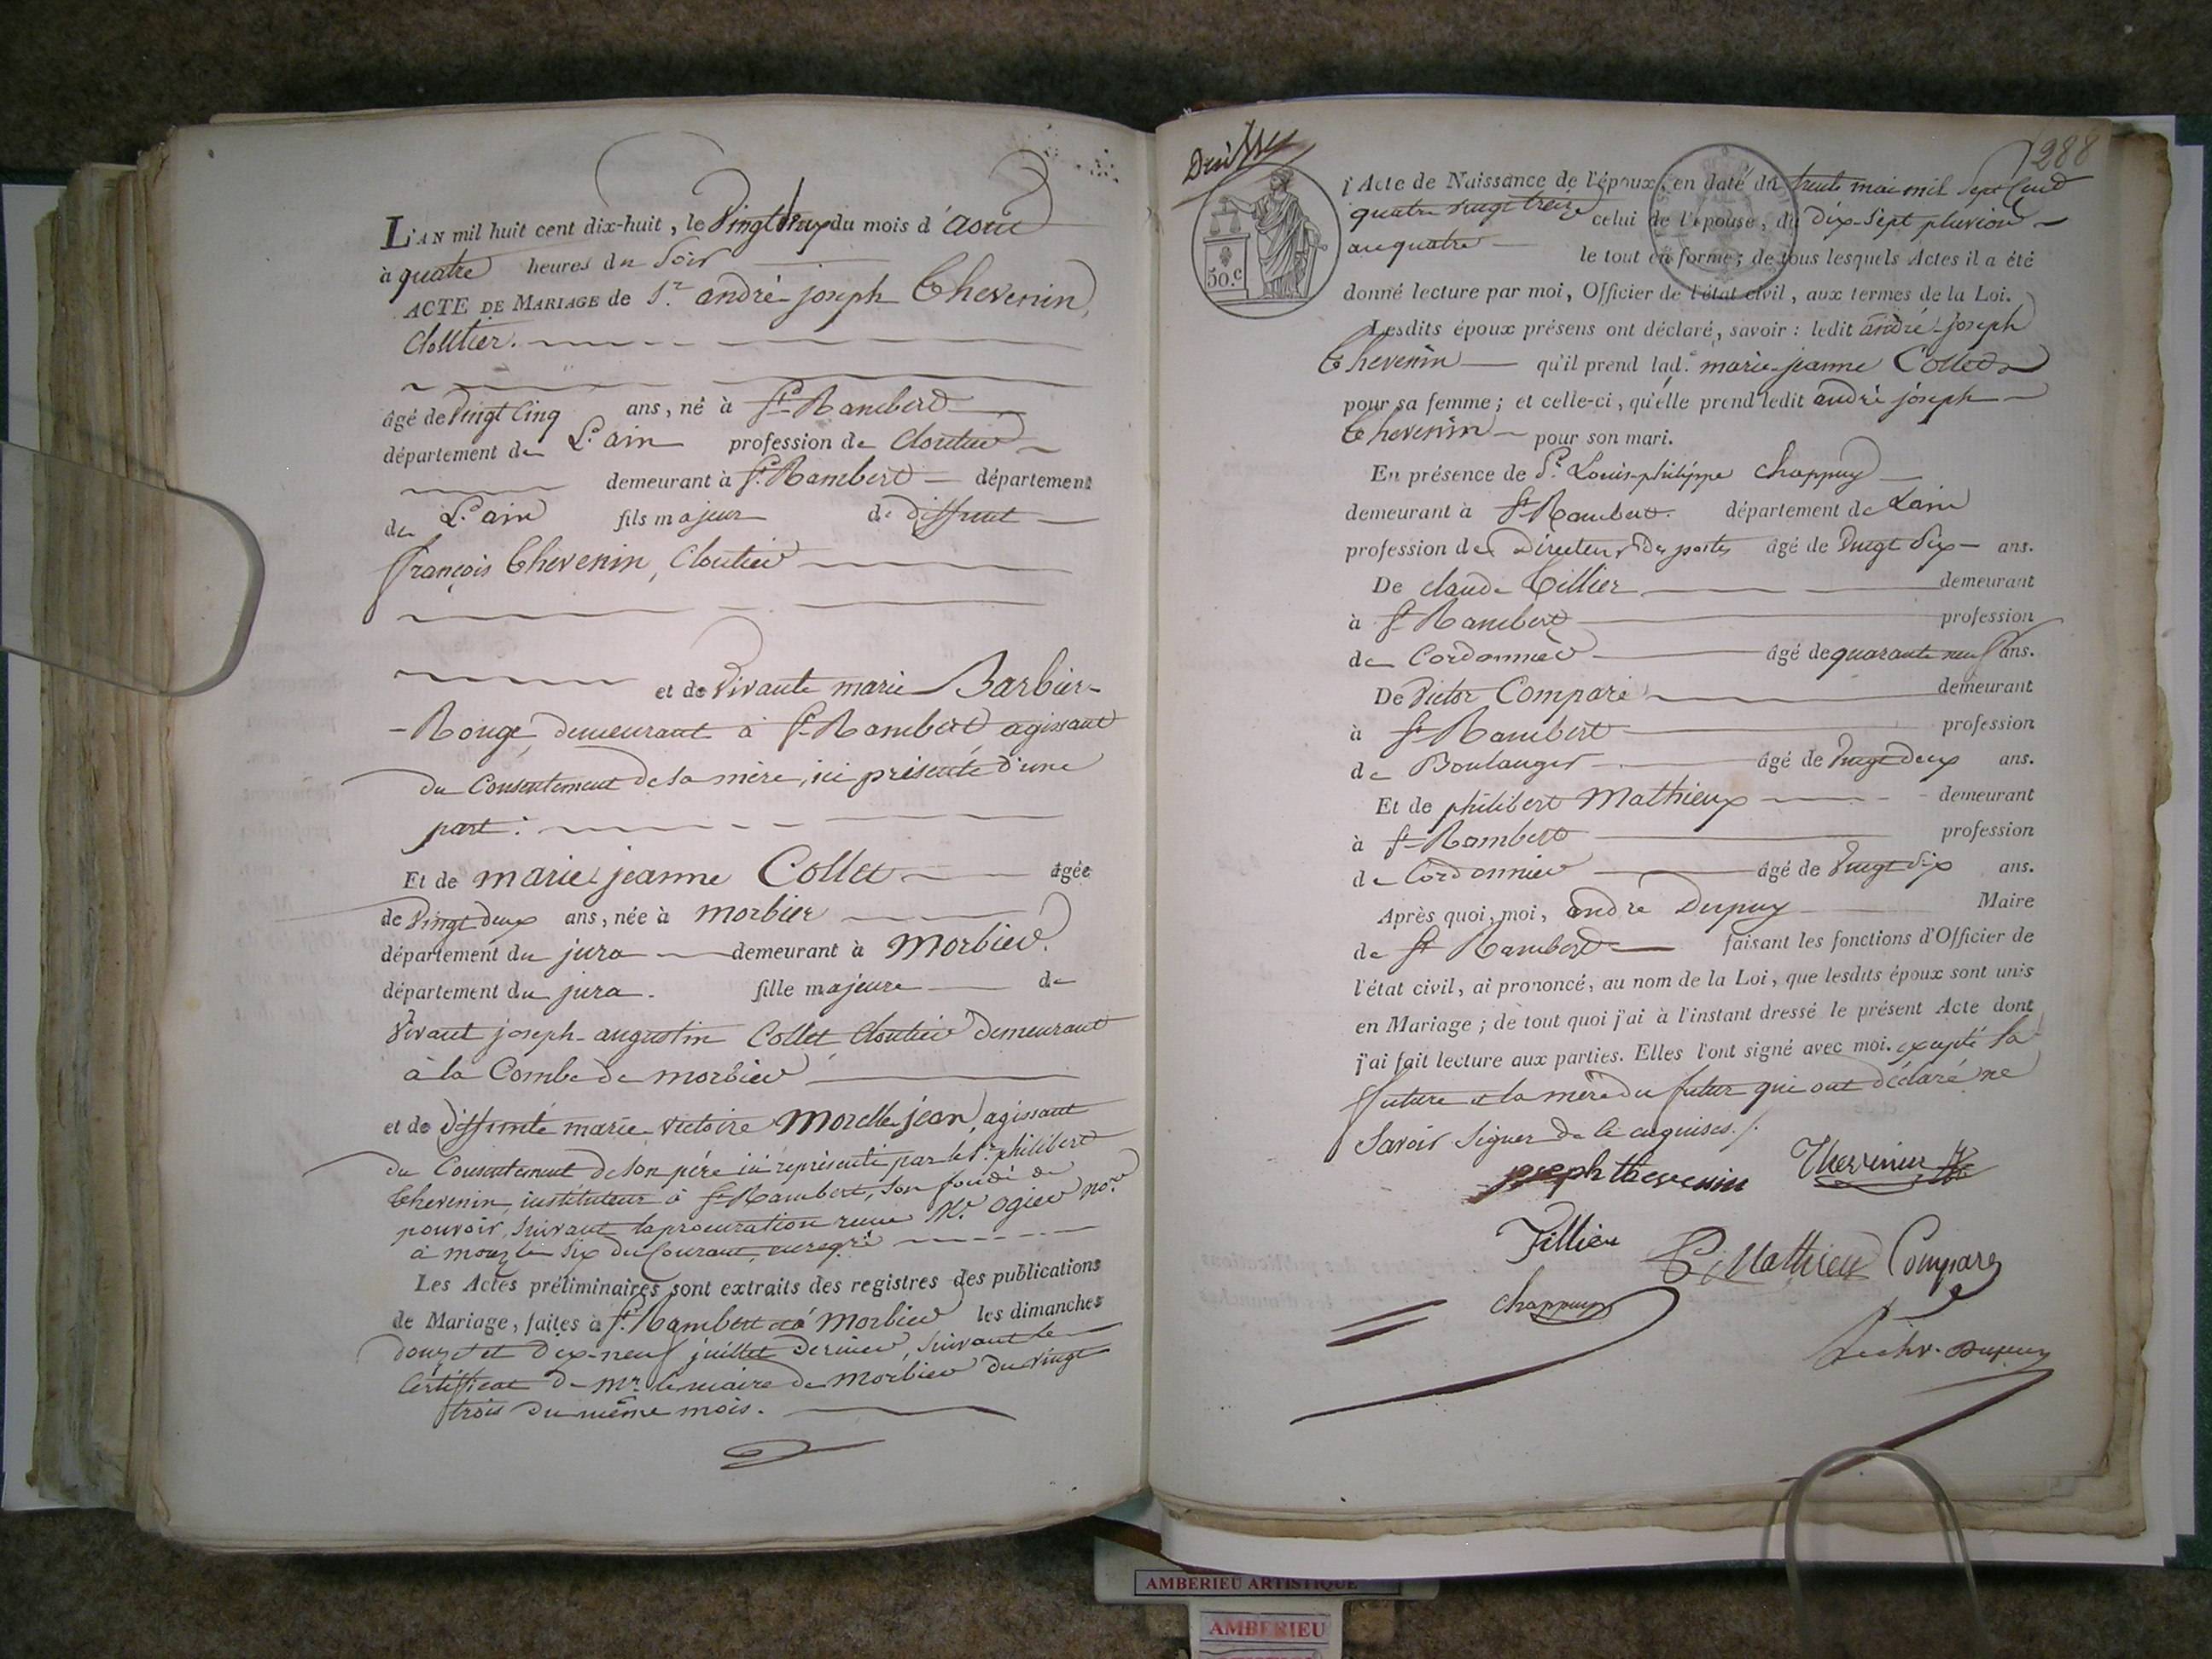 L'AN mil huit cent dix-huit, le Vingt deux du mois d'août
à quatre heures du Soir
ACTE DE MARIAGE de Sr. andré-joseph Thevenin,
Cloutier.
âgé de Vingt Cinq ans, né à St. Rambert
département de L'ain profession de Cloutier
demeurant à St. Rambert département
de L'ain fils majeur de deffunt
françois Thevenin, Cloutier
et de Vivante marie Barbier-
-Rouge, demeurant à St. Rambert agissant
du Consentement de sa mère, ici présente d'une
part:
Et de marie jeanne Collet âgée
de Vingt deux ans, née à morbier
département du jura demeurant à Morbier.
département du jura. fille majeure de
Vivant joseph-augustin Collet Cloutier demeurant
à la Combe de morbier
et de deffunte marie victoire Morelle jean, agissant
du Consentement de son père ici représenté par le Sr. philibert
Thevenin, instituteur à St. Rambert, son fondé de
pouvoir, Suivant la procuration reçue Me. Ogier nore.
à le Six du Courant, enregré
Les Actes préliminaires sont extraits des registres des publications
de Mariage, faites à St. Rambert et à Morbier les dimanches
douze et dix-neuf juillet dernier, suivant le
Certificat de Mr. le maire de Morbier du vingt
trois du même mois.
288
l'Acte de Naissance de l'époux, en date du trente mai mil Sept Cent
quatre vingt treize celui de l'épouse, du dix-Sept pluviose
an quatre le tout en forme; de tous lesquels Actes il a été
50.c
donné lecture par moi, Officier de l'état civil, aux termes de la Loi.
Lesdits époux présens ont déclaré, savoir: ledit andré-joseph
Thevenin qu'il prend lad.e marie-jeanne Collet
pour sa femme; et celle-ci, qu'elle prend ledit andré joseph
Thevenin pour son mari.
En présence de Sr. Louis-philippe Chappuy
demeurant à St. Rambert. département de Lain
profession de Directeur des postes âgé de Vingt Six ans.
De claude Tillier demeurant
à St. Rambert profession
de Cordonnier âgé de quarante neuf ans.
De Victor Comparé demeurant
à St. Rambert profession
de Boulanger âgé de Vingt deux ans.
Et de philibert Mathieux demeurant
à St. Rambert profession
de Cordonnier âgé de Vingt Six ans.
Après quoi, moi, andré Dupuy Maire
de St. Rambert faisant les fonctions d'Officier de
l'état civil, ai prononcé, au nom de la Loi, que lesdits époux sont unis
en Mariage; de tout quoi j'ai à l'instant dressé le présent Acte dont
j'ai fait lecture aux parties. Elles l'ont signé avec moi. excepté la
future et la mère du futur qui ont déclaré ne
Savoir Signer de ce enquises./.
joseph thevenin Thevenin
Tillier P. Mathieu Compare
Chappuy
Dupuy
AMBERIEU ARTISTIQUE
AMBERIEU